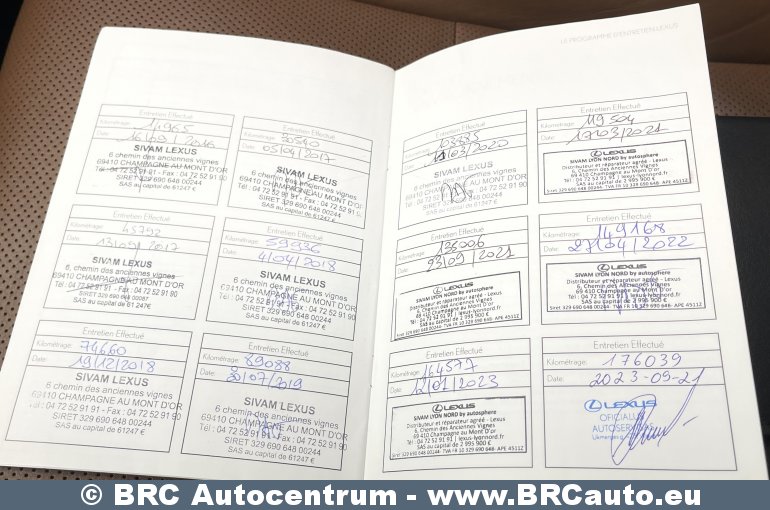 LE PROGRAMME D'ENTRETIEN LEXUS
Entretien Effectué
Kilométrage:
Date: 16/09/2016
SIVAM LEXUS
6 chemin des anciennes vignes
69410 CHAMPAGNE AU MONT D'OR
Tél : 04 72 52 91 91 - Fax : 04 72 52 91 90
SIRET 329 690 648 00244
SAS au capital de 61247 €
Entretien Effectué
Kilométrage: 30540
Date: 05/04/2017
SIVAM LEXUS
6 chemin des anciennes vignes
69410 CHAMPAGNE AU MONT D'OR
Tél : 04 72 52 91 91 - Fax : 04 72 52 91 90
SIRET 329 690 648 00244
SAS au capital de 61247 €
Entretien Effectué
Kilométrage: 45792
Date: 13/09/2017
SIVAM LEXUS
6, chemin des anciennes vignes
69410 CHAMPAGNE AU MONT D'OR
Tél : 04 72 52 91 91 - Fax : 04 72 52 91 90
SIRET 329 690 648 00087
SAS au capital de 61.247€
Entretien Effectué
Kilométrage: 59336
Date: 4/04/2018
SIVAM LEXUS
6 chemin des anciennes vignes
69410 CHAMPAGNE AU MONT D'OR
Tél : 04 72 52 91 91 - Fax : 04 72 52 91 90
SIRET 329 690 648 00244
SAS au capital de 61247 €
Entretien Effectué
Kilométrage: 74660
Date: 19/12/2018
SIVAM LEXUS
6 chemin des anciennes vignes
69410 CHAMPAGNE AU MONT D'OR
Tél : 04 72 52 91 91 - Fax : 04 72 52 91 90
SIRET 329 690 648 00244
SAS au capital de 61247 €
Entretien Effectué
Kilométrage: 89088
Date: 30/07/2019
SIVAM LEXUS
6 chemin des anciennes vignes
69410 CHAMPAGNE AU MONT D'OR
Tél : 04 72 52 91 91 - Fax : 04 72 52 91 90
SIRET 329 690 648 00244
SAS au capital de 61247 €
Entretien Effectué
Kilométrage:
Date: 11/03/2020
SIVAM LEXUS
6 chemin des anciennes vignes
69410 CHAMPAGNE AU MONT D'OR
Tél : 04 72 52 91 91 - Fax : 04 72 52 91 90
SIRET 329 690 648 00244
SAS au capital de 61247 €
Entretien Effectué
Kilométrage: 119504
Date: 17/03/2021
LEXUS
SIVAM LYON NORD by autosphere
Distributeur et réparateur agréé - Lexus
6, Chemin des Anciennes Vignes
69 410 Champagne au Mont d'Or
Tél : 04 72 52 91 91 | lexus-lyonnord.fr
SAS au capital de 2 995 900 €
Siret 329 690 648 00244 - TVA FR 10 329 690 648 - APE 4511Z
Entretien Effectué
Kilométrage:
Date: 23/09/2021
LEXUS
SIVAM LYON NORD by autosphere
Distributeur et réparateur agréé - Lexus
6, Chemin des Anciennes Vignes
69 410 Champagne au Mont d'Or
Tél : 04 72 52 91 91 | lexus-lyonnord.fr
SAS au capital de 2 995 900 €
Siret 329 690 648 00244 - TVA FR 10 329 690 648 - APE 4511Z
Entretien Effectué
Kilométrage: 149168
Date: /04/2022
LEXUS
SIVAM LYON NORD by autosphere
Distributeur et réparateur agréé - Lexus
6, Chemin des Anciennes Vignes
69 410 Champagne au Mont d'Or
Tél : 04 72 52 91 91 | lexus-lyonnord.fr
SAS au capital de 2 995 900 €
Siret 329 690 648 00244 - TVA FR 10 329 690 648 - APE 4511Z
Entretien Effectué
Kilométrage: 164577
Date: 12/01/2023
LEXUS
SIVAM LYON NORD by autosphere
Distributeur et réparateur agréé - Lexus
6, Chemin des Anciennes Vignes
69 410 Champagne au Mont d'Or
Tél : 04 72 52 91 91 | lexus-lyonnord.fr
SAS au capital de 2 995 900 €
Siret 329 690 648 00244 - TVA FR 10 329 690 648 - APE 4511Z
Entretien Effectué
Kilométrage: 176039
Date: 2023-09-21
LEXUS
OFICIALUS
AUTOSERVISAS
© BRC Autocentrum - www.BRCauto.eu